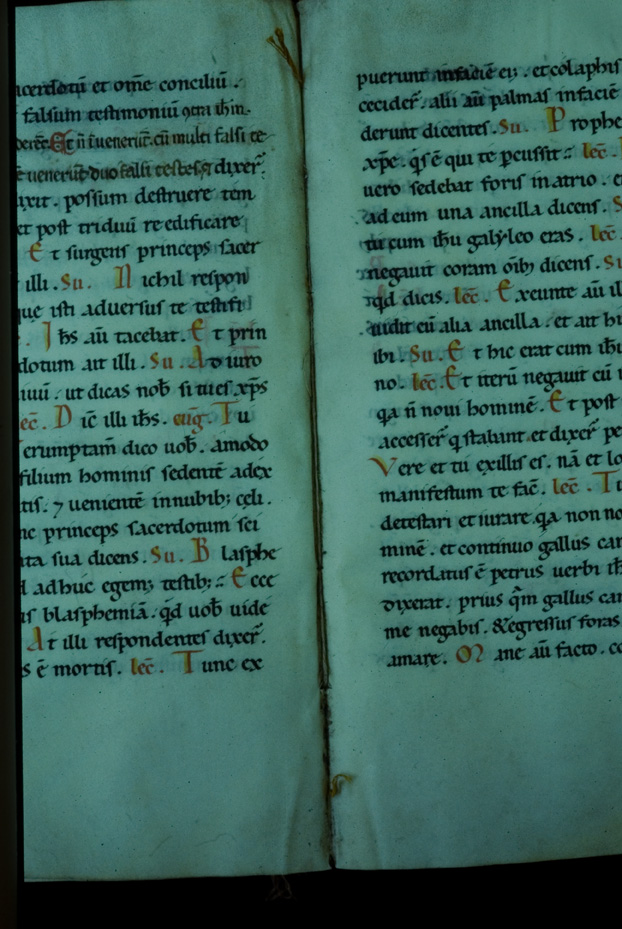 acerdotũ et om̃e conciliũ .
falsum testimoniũ ꝯtra ih̃m.
derẽt. Et ñ ĩuenerũt. cũ multi falsi te
uenerũt duo falsi testes. ⁊ dixer̃.
ixit . possum destruere tem
et post triduũ reedificare
Et surgens princeps sacer
illi . Su . Nichil respon
que isti adversus te testifi
. Ih̃s aũ tacebat . Et prin
dotum ait illi . Su . Adiuro
iuũ . ut dicas nob̃ si tu es xp̃s
lec̃ . Dic̃ illi ih̃s . eug̃ . Tu
erumptam̃ dico uob̃ . amodo
filium hominis sedentẽ adex
tis . ⁊ uenientẽ innubib; celi .
nc princeps sacerdotum sci
ta sua dicens . Su . Blasphe
adhuc egem; testib; :: Ecce
is blasphemiã . qd̃ uob̃ uide
At illi respondentes dixer̃ .
s ẽ mortis . lec̃ . Tunc ex
puerunt infaciẽ ei; . et colaphis
cecider̃ . alii aũ palmas infaciẽ
derunt dicentes . Su . Prophe
xp̃e . qs̃ ẽ qui te pcussit :: lec̃ .
uero sedebat foris inatrio . e
ad eum una ancilla dicens . S
tu cum ih̃u galyleo eras . lec̃ .
negauit coram oĩb; dicens . Su
qd̃ dicis . lec̃ . Exeunte aũ il
uidit eũ alia ancilla . et ait hi
ibi . Su . Et hic erat cum ih̃u
no . lec̃ . Et iterũ negauit cũ i
qa ñ noui hominẽ . Et post
accesser̃ q stabant . et dixer̃ pe
Vere et tu exillis es . nã et lo
manifestum te fac̃ . lec̃ . Tu
detestari et iurare qa non no
minẽ . et continuo gallus can
recordatus ẽ petrus uerbi ih̃
dixerat . prius qm̃ gallus can
me negabis . &egressus foras
amare . Mane aũ facto . co